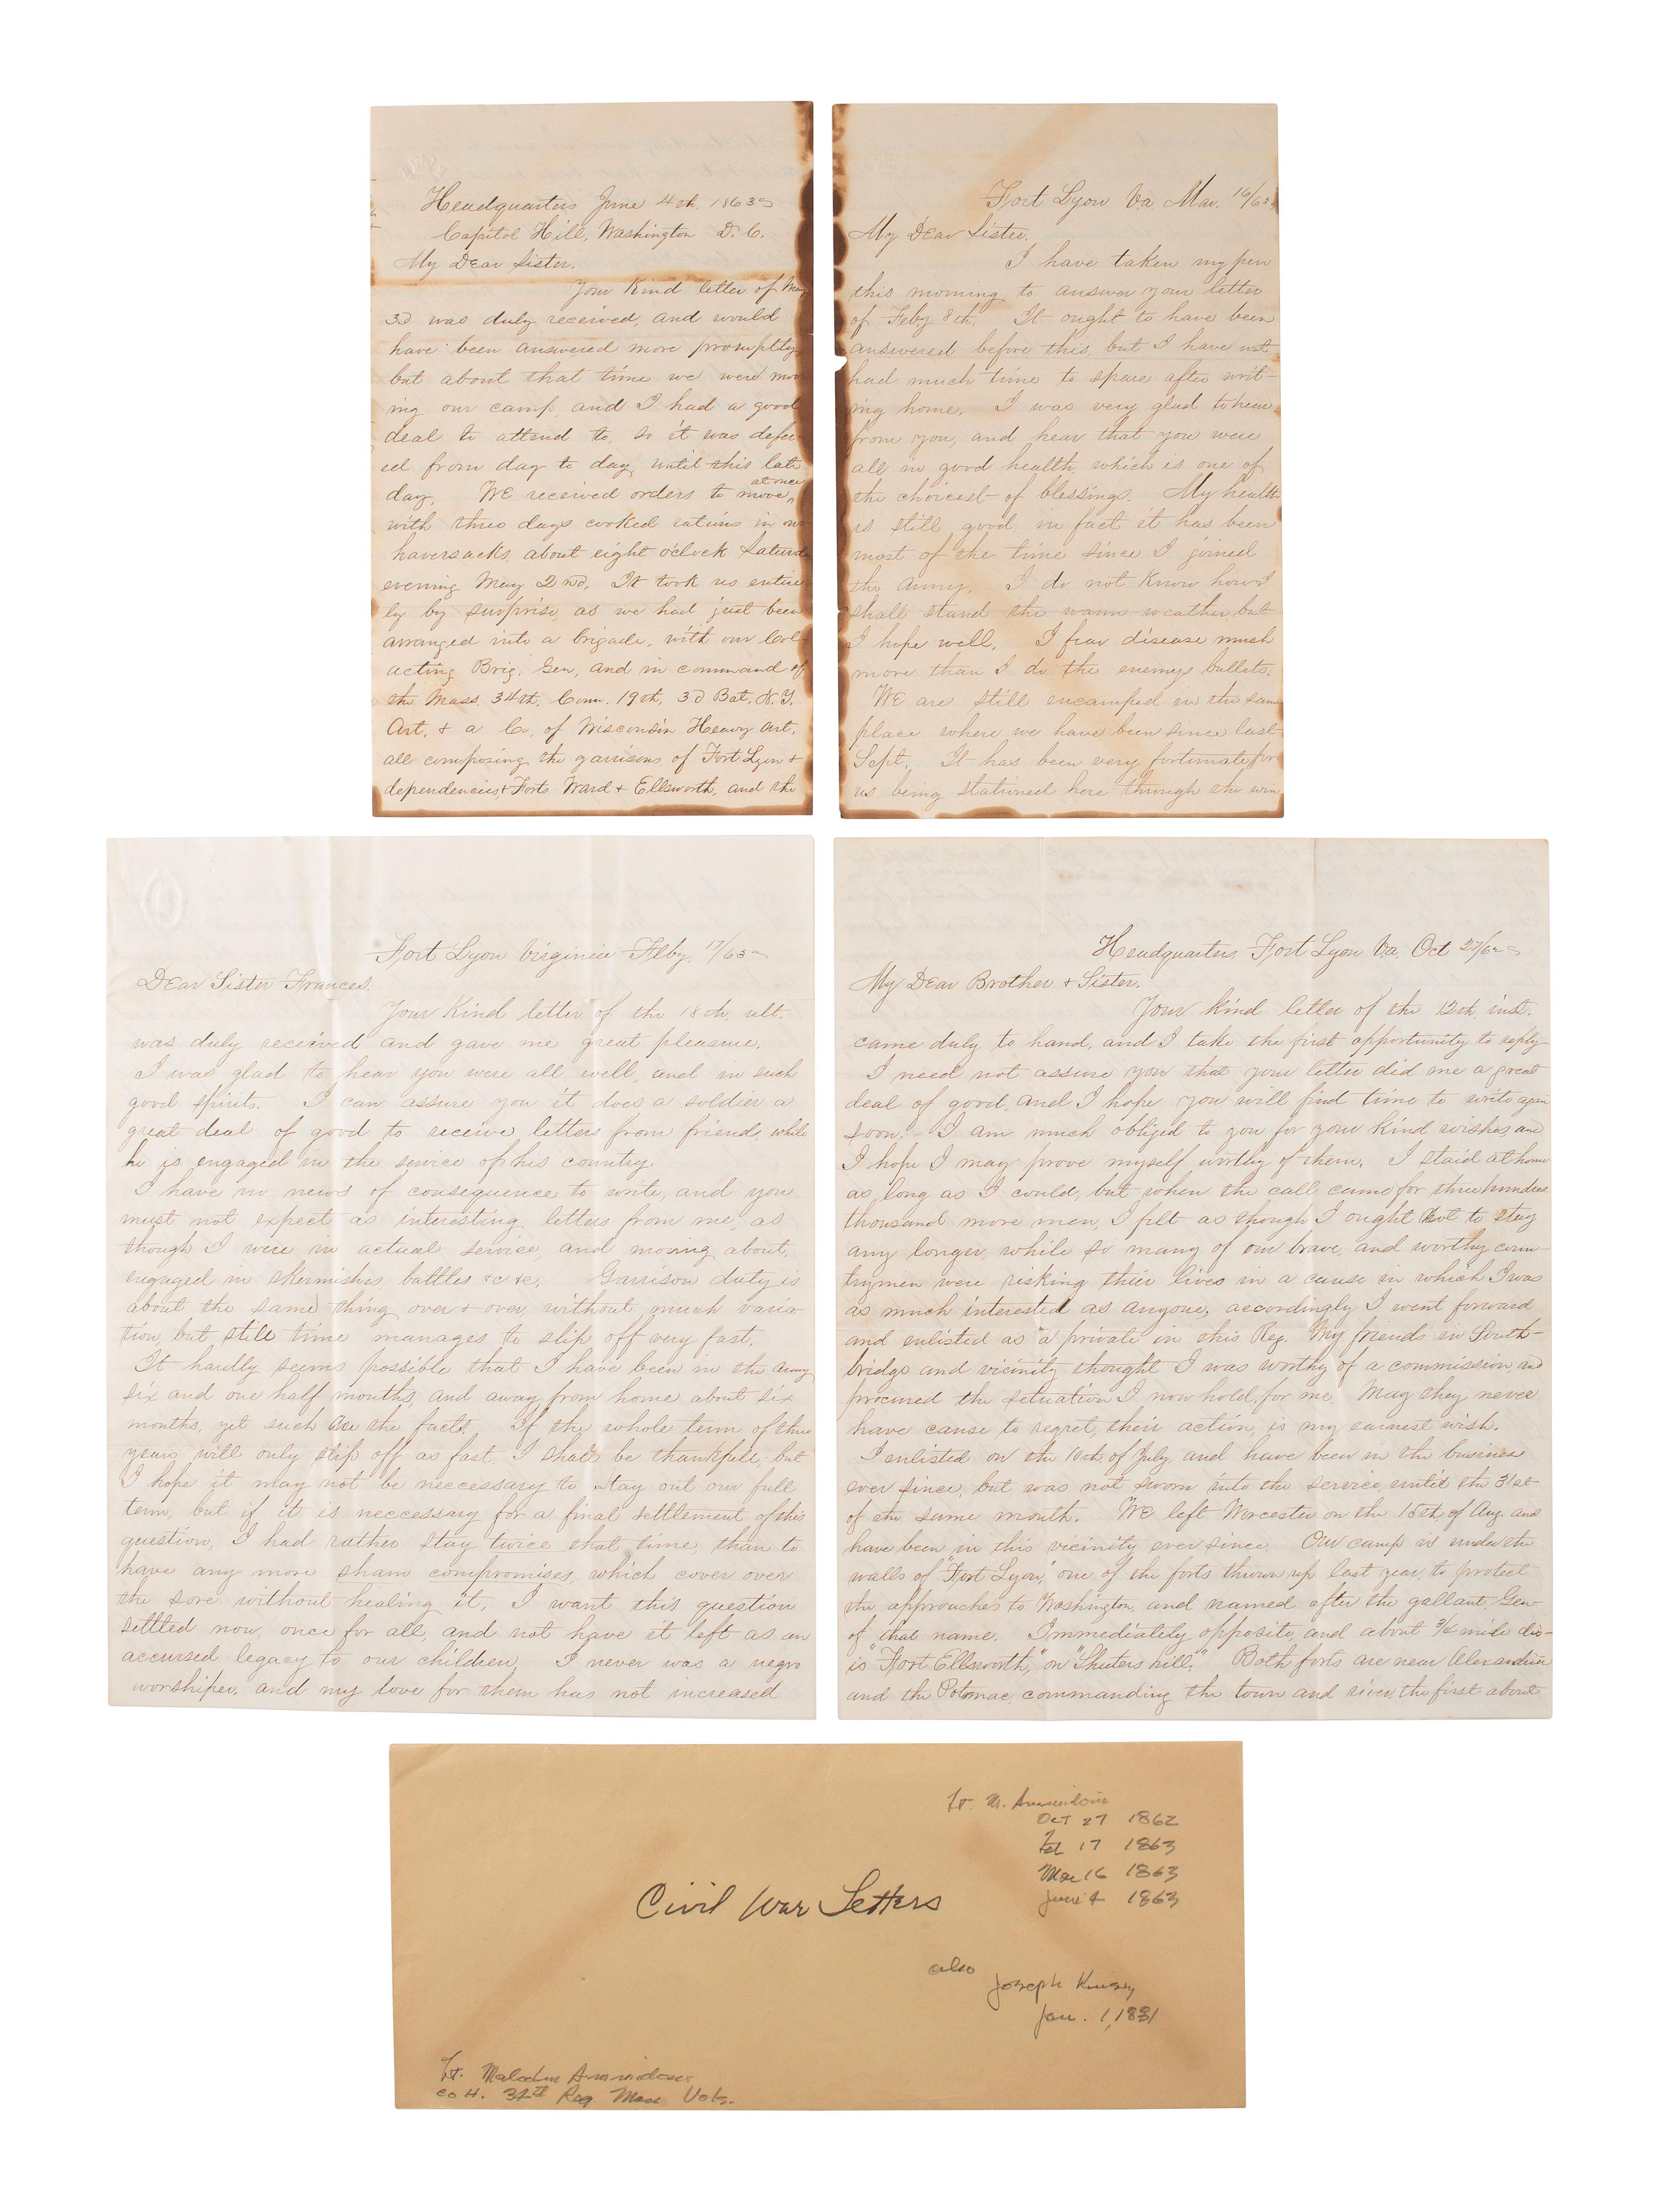 Headquarters June 4th. 1863
Capitol Hill, Washington D. C.
My Dear Sister.
Your Kind letter of May
3d was duly received, and would
have been answered more promptly
but about that time we were mov
ing our camp, and I had a good
deal to attend to, so it was defer
ed from day to day, until this late
day. We received orders to move, at once
with three days cooked rations in our
haversacks, about eight o'clock Saturd
evening May 2nd. It took us entire
ly by surprise, as we had just been
arranged into a brigade, with our Col
acting Brig. Gen, and in command of
the Mass. 34th, Conn. 19th, 3d Bat. N. Y.
Art. & a Co. of Wisconsin Heavy Art.
all composing the garrisons of Fort Lyon &
dependencies, & Forts Ward & Ellsworth, and the
Fort Lyon Va Mar. 16/63
My Dear Sister.
I have taken my pen
this morning to answer your letter
of Feby 8th. It ought to have been
answered before this, but I have not
had much time to spare after writ-
ing home. I was very glad to hear
from you, and hear that you were
all in good health, which is one of
the choicest of blessings. My health
is still good, in fact it has been
most of the time since I joined
the Army. I do not Know how I
shall stand the warm weather, but
I hope well. I fear disease much
more than I do the enemys bullets.
We are still encamped in the same
place where we have been since last
Sept. It has been very fortunate for
us being stationed here through the win
Fort Lyon Virginia Feby. 17/63
Dear Sister Frances.
Your Kind letter of the 18th ult.
was duly received and gave me great pleasure.
I was glad to hear you were all well, and in such
good spirits. I can assure you it does a soldier a
great deal of good to receive letters from friends, while
he is engaged in the service of his country.
I have no news of consequence to write, and you
must not expect as interesting letters from me, as
though I were in actual service, and moving about,
engaged in skermishes, battles &c &c. Garrison duty is
about the same thing over & over, without much varia
tion, but still time manages to slip off very fast.
It hardly seems possible that I have been in the Army
six and one half months, and away from home about six
months, yet such are the facts. If the whole term of three
years will only slip off as fast, I shall be thankfull, but
I hope it may not be neccessary to stay out our full
term, but if it is neccessary for a final settlement of this
question, I had rather stay twice that time, than to
have any more sham compromises, which cover over
the sore without healing it. I want this question
settled now, once for all, and not have it left as an
accursed legacy to our children. I never was a negro
worshiper, and my love for them has not increased
Headquarters, Fort Lyon Va. Oct 27/62
My Dear Brother & Sister.
Your kind letter of the 12th, inst.
came duly to hand, and I take the first opportunity to reply
I need not assure you that your letter did me a great
deal of good, and I hope you will find time to write again
soon. I am much obliged to you for your kind wishes, and
I hope I may prove myself worthy of them. I staid at home
as long as I could, but when the call came for three hundred
thousand more men, I felt as though I ought not to stay
any longer, while so many of our brave, and worthy coun-
trymen were risking thier lives in a cause in which I was
as much interested as anyone, accordingly I went forward
and enlisted as a private in this Reg. My friends in South-
bridge and vicinity thought I was worthy of a commission, and
procured the setuation I now hold, for me. May they never
have cause to regret, their action, is my earnest wish.
I enlisted on the 10th, of July and have been in the business
ever since, but was not sworn into the service, until the 31st
of the same month. We left Worcester on the 15th of Aug. and
have been in this vicinity ever since. Our camp is under the
walls of "Fort Lyon," one of the forts thrown up last year to protect
the approaches to Washington, and named after the gallant Gen
of that name. Immediately opposite, and about 3/4 mile dis-
is "Fort Ellsworth," on "Shuters hill." Both forts are near Alexandria
and the Potomac, commanding the town and river, the first about
Lt. M.
Oct 27 1862
Feb 17 1863
Mar 16 1863
June 4 1863
Civil War Letters
also
Joseph
Jan. 1, 1831
Lt.
Co H. 34th Reg Mass Vols.